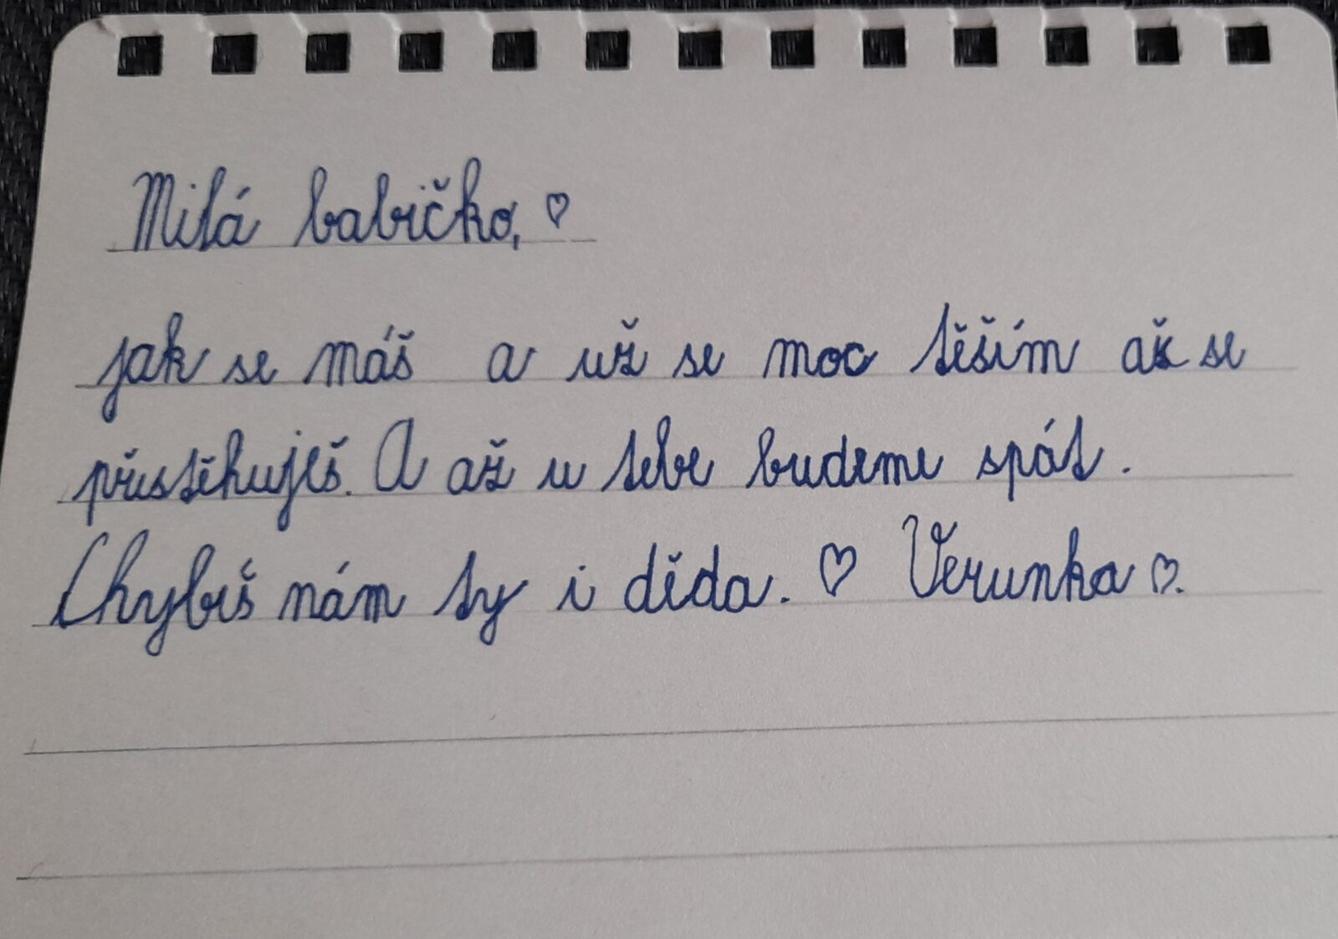 Milá babičko, ♡
jak se máš a už se moc těším až se
přestěhuješ. A až u tebe budeme spát.
Chybíš nám ty i děda. ♡ Verunka ♡.